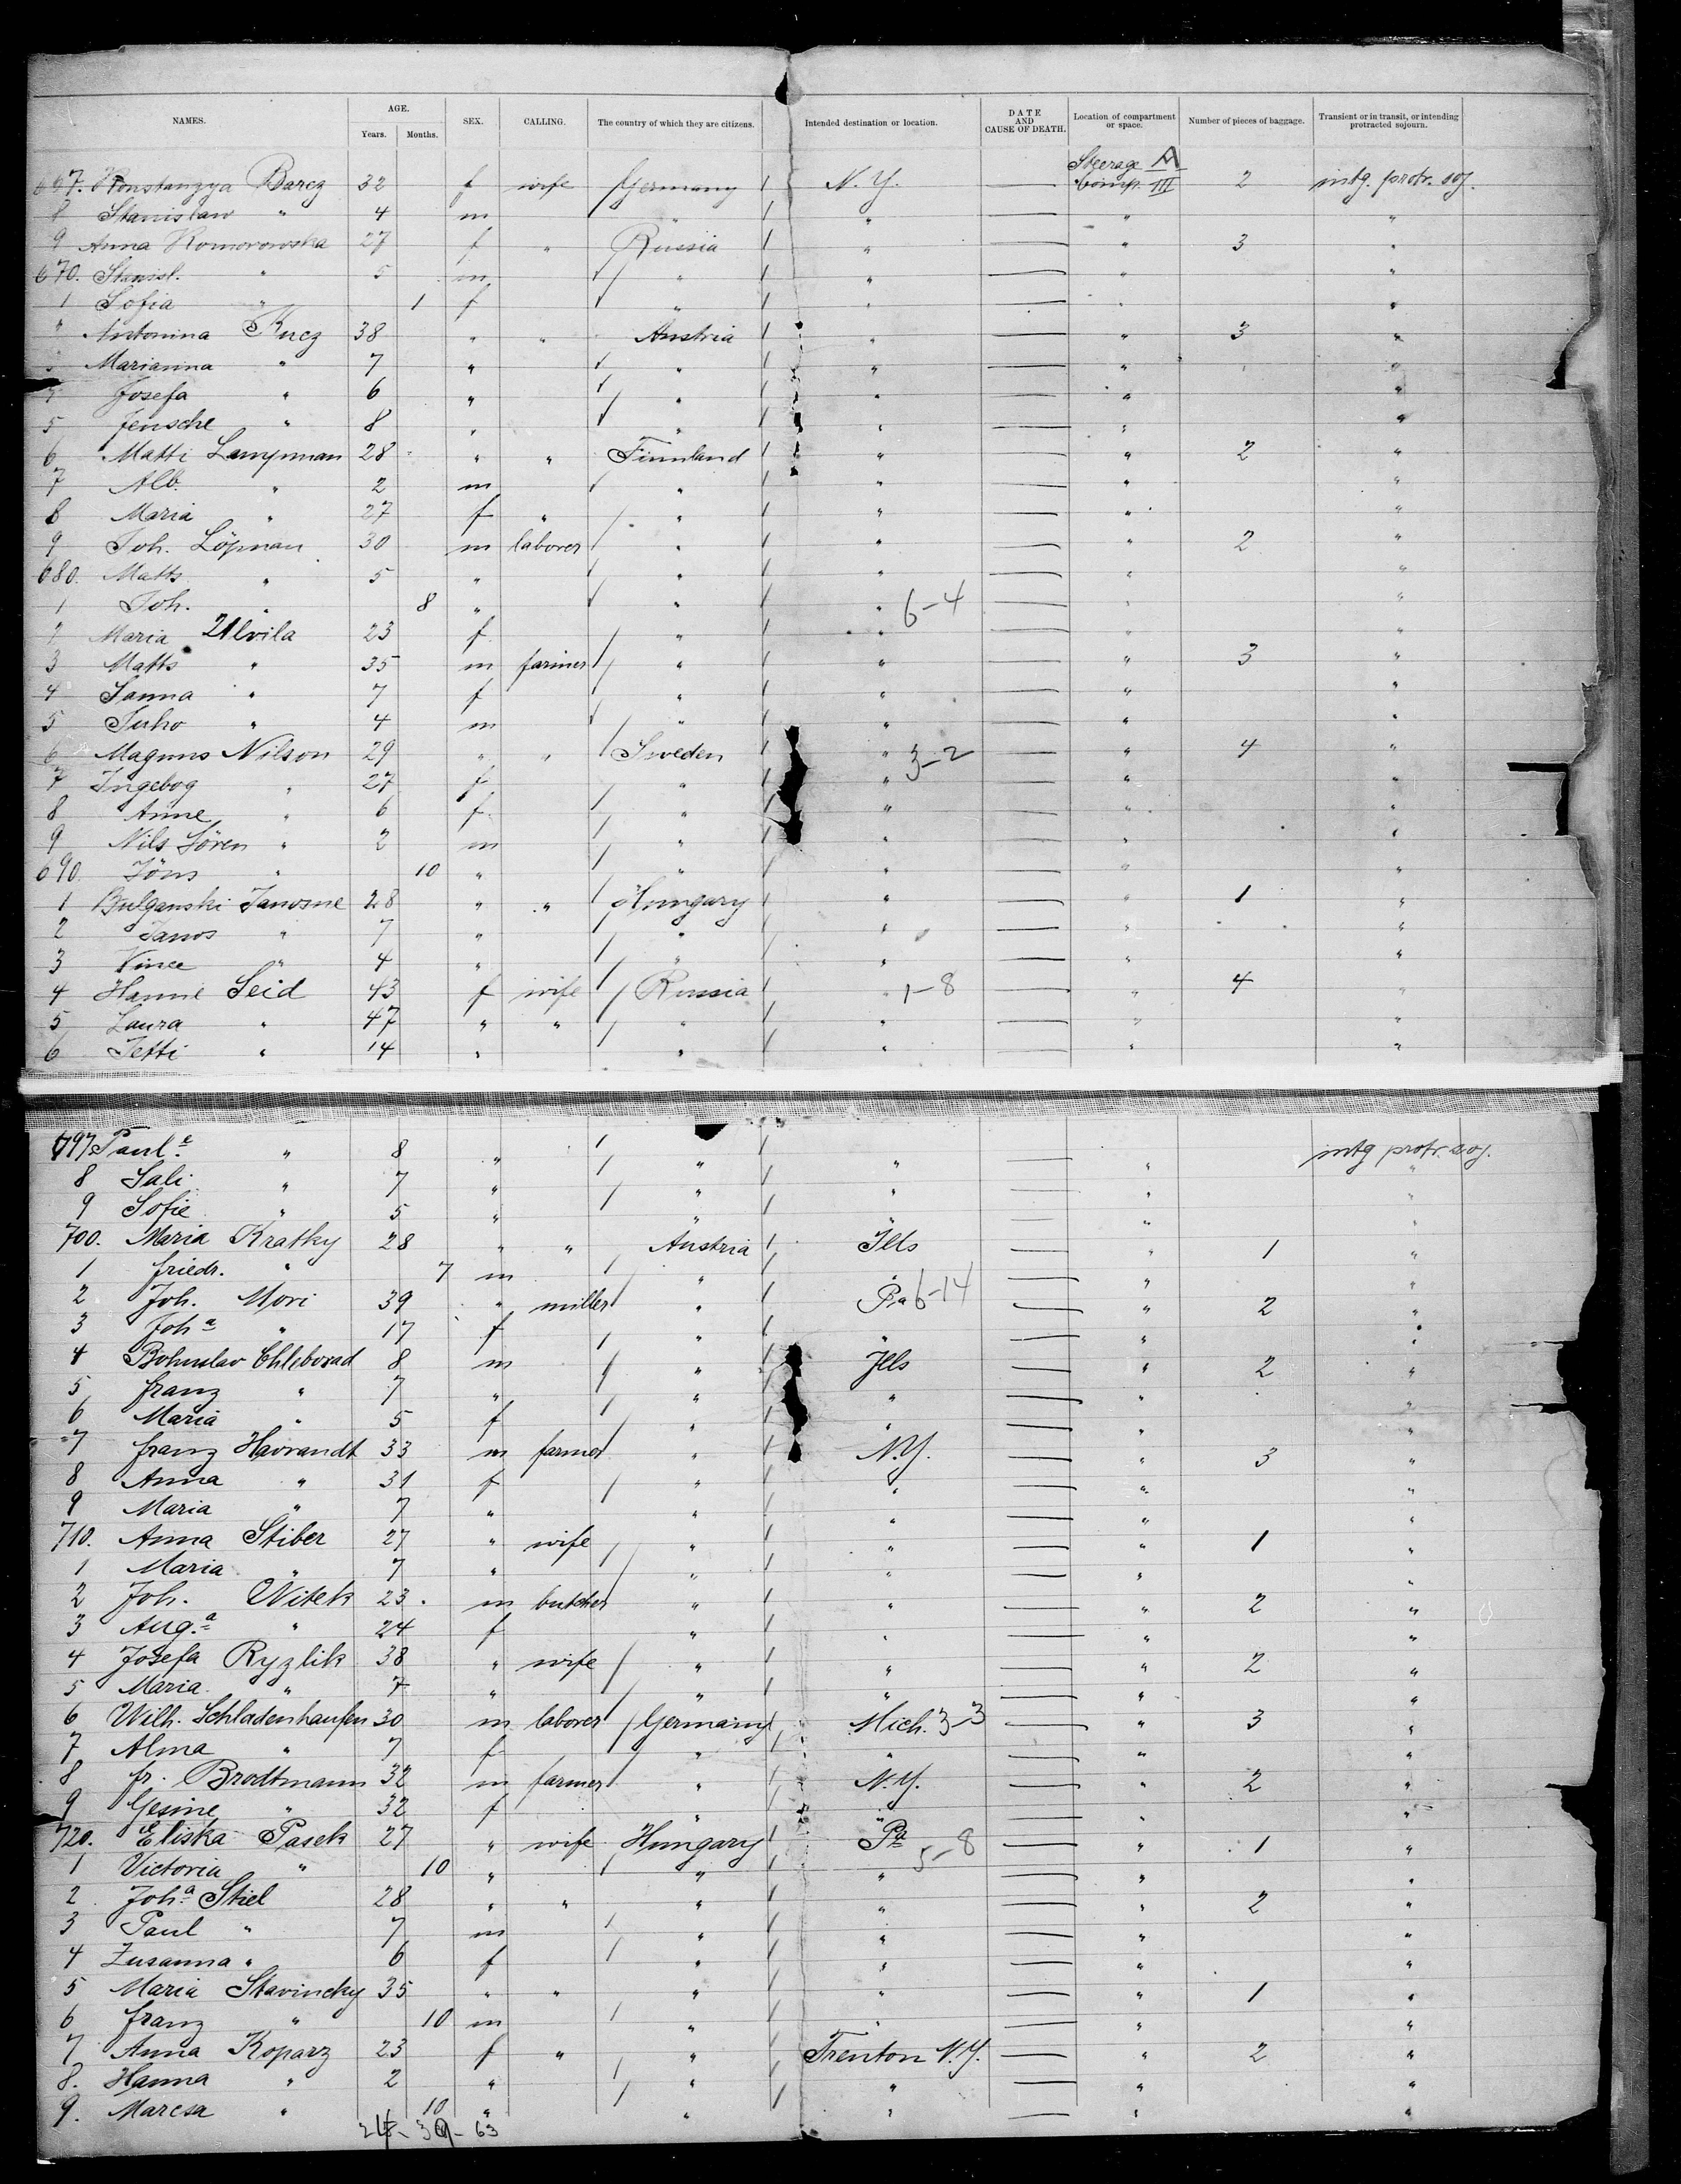 NAMES. AGE. SEX. CALLING. The country of which they are citizens. Intended destination or location. DATE AND CAUSE OF DEATH. Location of compartment or space. Number of pieces of baggage. Transient or in transit, or intending protracted sojourn.
Years. Months.
Steerage A
667. Konstanzya Barcz 32 f wife Germany N.Y. — Comp. III 2 intg. protr. soj.
8 Stanislaw " 4 m " " — " "
9 Anna Komorowska 27 f " Russia " — " 3 "
670. Stanisl. " 5 m " " — " "
1 Sofia " 1 f " " — " "
" Antonina Kucz 38 " " Austria " — " 3 "
Marianna " 7 " " " — " "
Josefa " 6 " " " — " "
5 Jensche " 8 " " " — " "
6 Matti Lampman 28 " " Finnland " — " 2 "
7 Alb. " 2 m " " — " "
8 Maria " 27 f " " " — " "
9 Joh. Löpman 30 m laborer " " — " 2 "
680. Matts " 5 " " " — " "
1 Joh. " 8 " " " 6-4 — " "
Maria Ulvila 23 f " " — " "
3 Matts " 35 m farmer " " — " 3 "
4 Sanna " 7 f " " — " "
5 Juho " 4 m " " — " "
6 Magnus Nilson 29 " " Sweden " 3-2 — " 4 "
7 Ingebog " 27 f " " — " "
8 Anne " 6 f. " " — " "
9 Nils Sören " 2 m " " — " "
690. Jöns " 10 " " " — " "
1 Bulganski Janosne 28 " " Hungary " — " 1 "
2 Janos " 7 " " " — " "
3 Vince " 4 " " " — " "
4 Hanne Seid 43 f wife Russia " 1-8 — " 4 "
5 Laura " 47 " " " " — " "
6 Jetti " 14 " " " — " "
697. Paule " 8 " " " — " intg protr. soj.
8 Sali " 7 " " " — " "
9 Sofie " 5 " " " — " "
700. Maria Kratky 28 " " Austria Ills — " 1 "
1 friedr. " 7 m " " — " "
2 Joh. Mori 39 " miller " Pa 6-14 — " 2 "
3 Joha " 17 f " " — " "
4 Bohuslav Chleborad 8 m " Ills — " 2 "
5 franz " 7 " " " — " "
6 Maria " 5 f " " — " "
7 franz Havrandt 33 m farmer " N.Y. — " 3 "
8 Anna " 31 f " " — " "
9 Maria " 7 " " " — " "
710. Anna Stiber 27 " wife " " — " 1 "
1 Maria " 7 " " " — " "
2 Joh. Witek 23. m butcher " " — " 2 "
3 Aug.a " 24 f " " — " "
4 Josefa Ryzlik 38 " wife " " — " 2 "
5 Maria " 7 " " " — " "
6 Wilh. Schladenhaufen 30 m laborer Germany Mich. 3-3 — " 3 "
7 Alma " 7 f " " — " "
8 fr. Brodtmann 32 m farmer " N.Y. — " 2 "
9 Gesine " 32 f " " — " "
720. Eliska Pasek 27 " wife Hungary Pa 5-8 — " 1 "
1 Victoria " 10 " " " — " "
2 Joha Stiel 28 " " " " — " 2 "
3 Paul " 7 m " " — " "
4 Zusanna " 6 f " " — " "
5 Maria Stavincky 35 " " " " — " 1 "
6 franz " 10 m " " — " "
7 Anna Koparz 23 f " " Trenton N.Y. — " 2 "
8. Hanna " 2 " " " — " "
9. Maresa " 10 " " " — " "
24-39-63